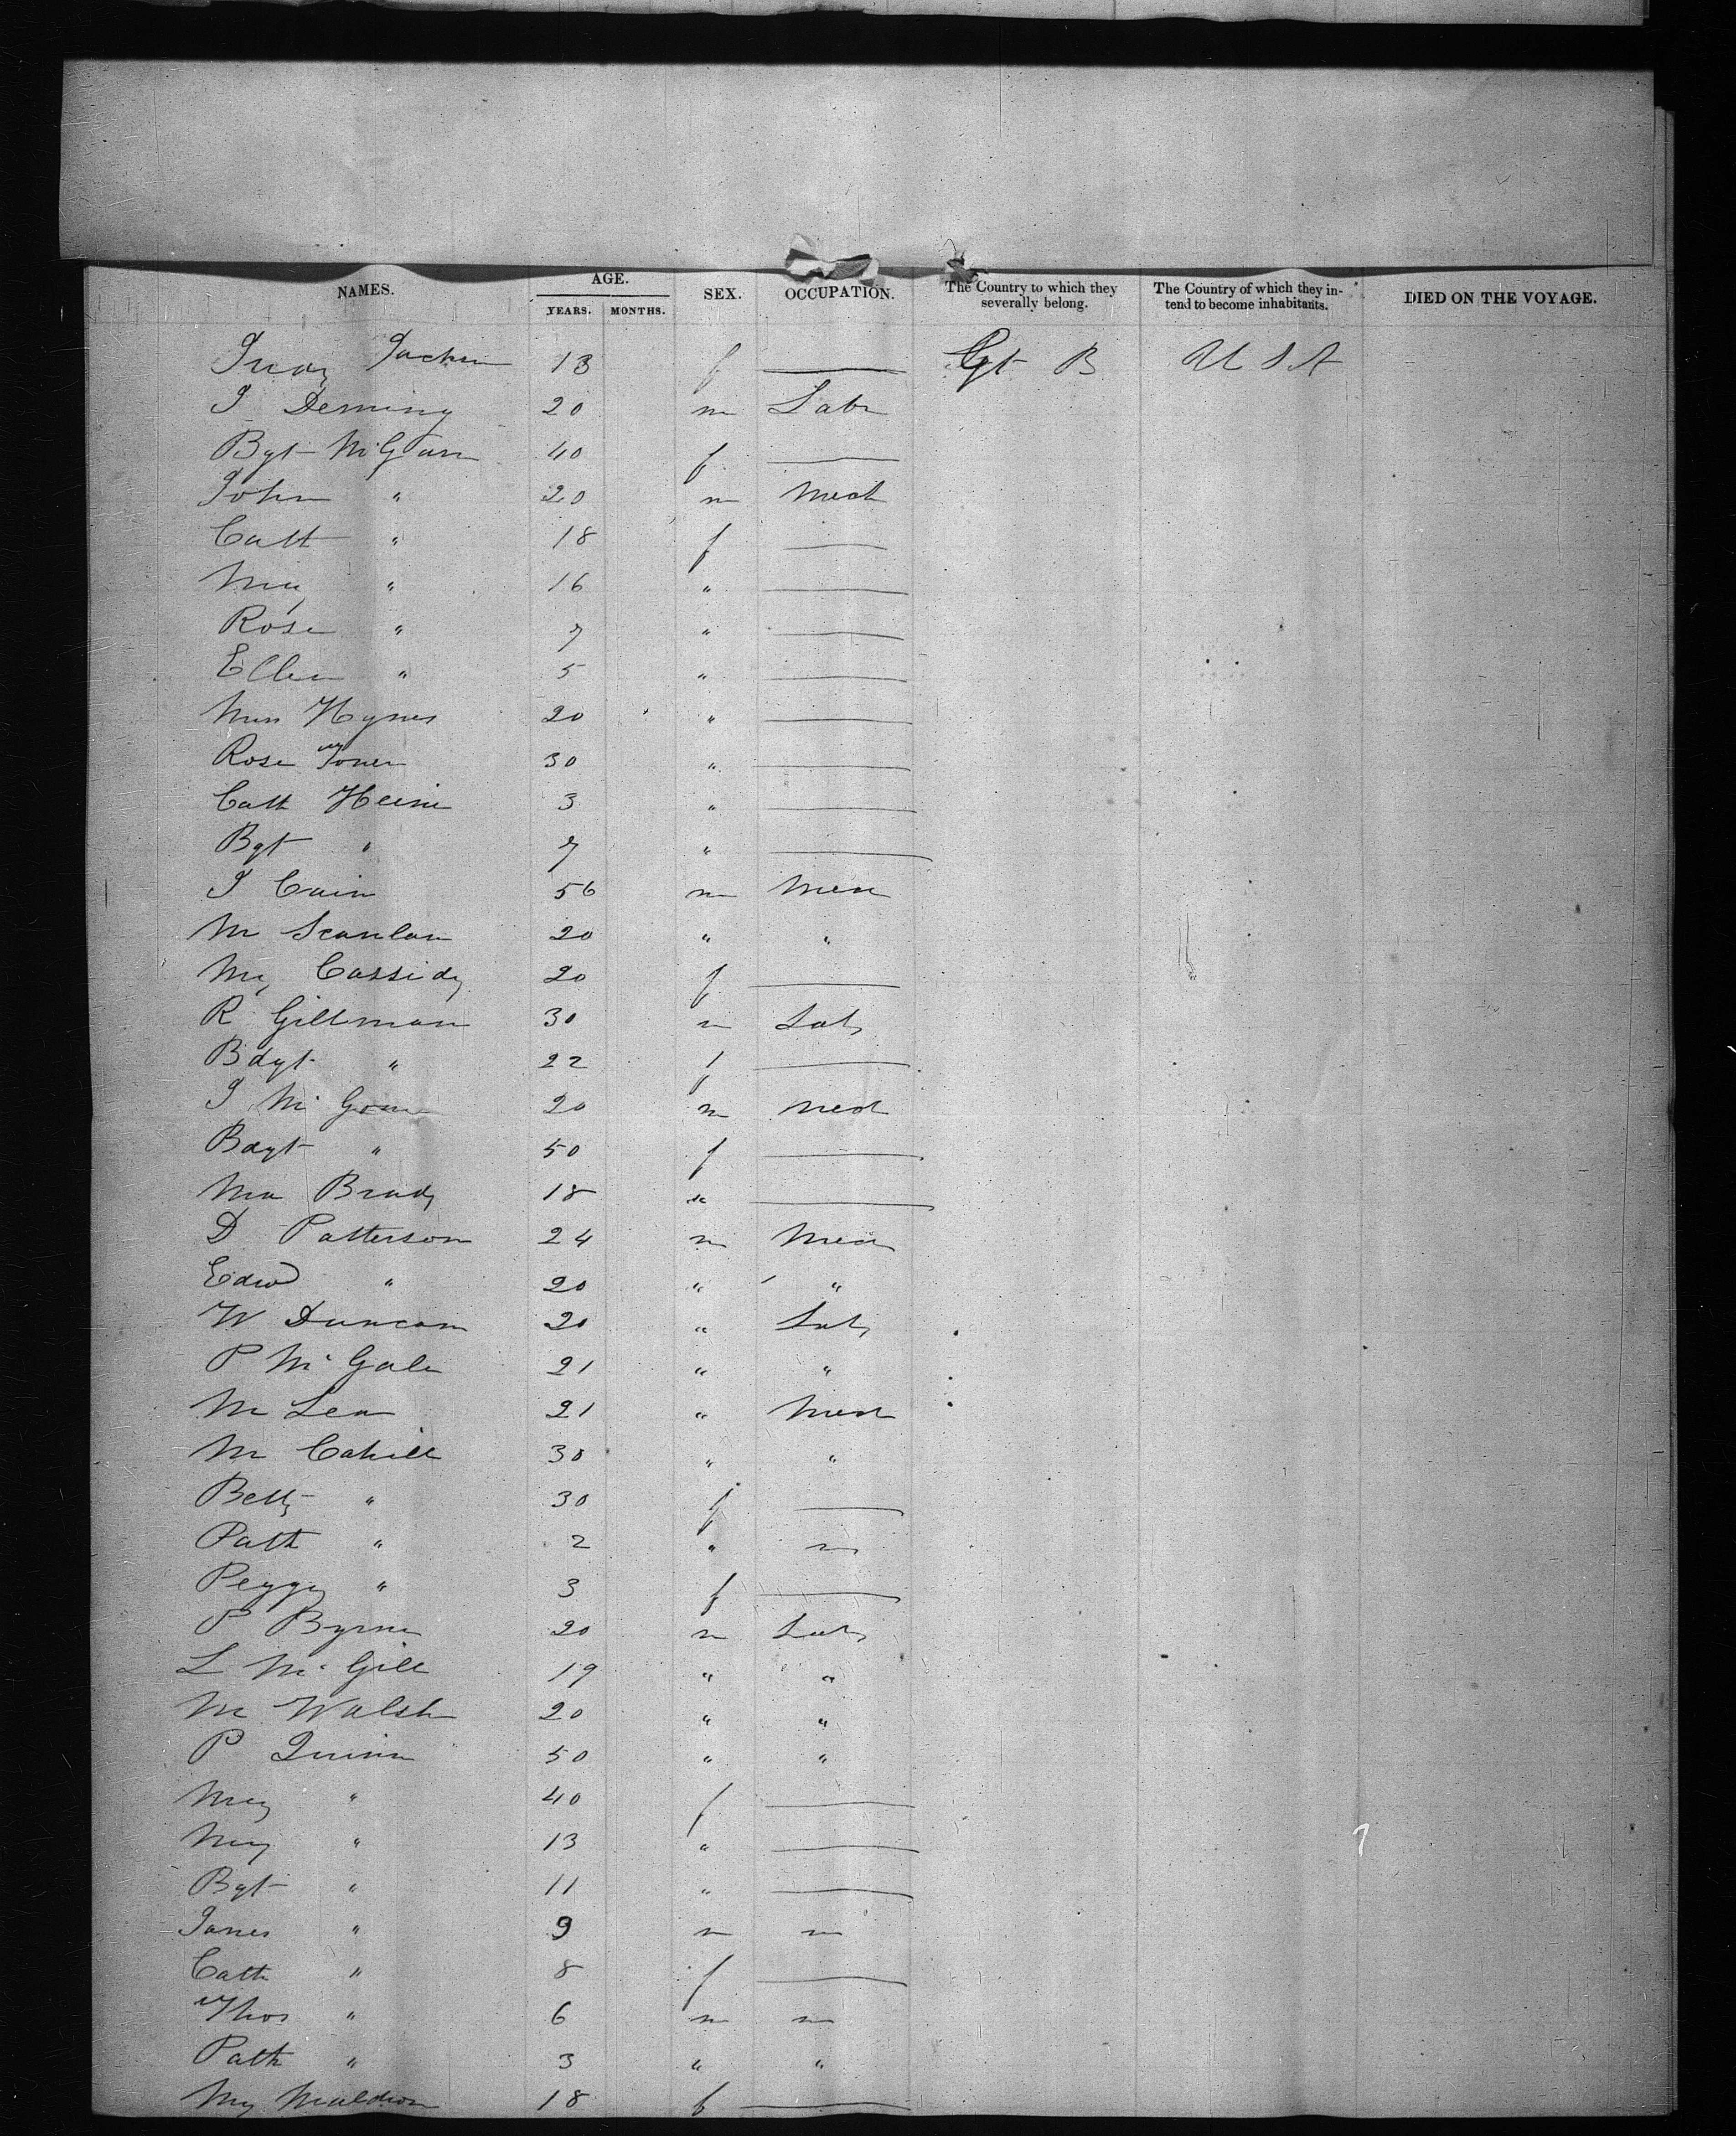 NAMES. AGE. SEX. OCCUPATION. The Country to which they severally belong. The Country of which they intend to become inhabitants. DIED ON THE VOYAGE.
YEARS. MONTHS.
Judy Jackson 13 f — Gt B U S A
J Deming 20 m Labr
Bgt McGann 40 f —
John " 20 m Mech
Cath " 18 f —
My " 16 " —
Rose " 7 " —
Ellen " 5 " —
Hynes 20 " —
Rose Toner 30 " —
Cath 3 " —
Bgt " 7 " —
J Cain 56 m Mech
M Scanlan 20 " "
My Cassidy 20 f —
R Gillman 30 m Lab
Bdgt " 22 f —
J Mc 20 m Mech
Bdgt " 50 f —
Ma Brady 18 " —
D Patterson 24 m Mech
Edwd " 20 " "
W Duncan 20 " Lab
P McGale 21 " "
M Lea 21 " Mech
M Cahill 30 " "
Betty " 30 f —
Path " 2 " m
Peggy " 3 f —
P Byrne 20 m Lab
L McGill 19 " "
M Walsh 20 " "
P Quinn 50 " "
May " 40 f —
My " 13 " —
Bgt " 11 " —
James " 9 m m
Cath " 8 f —
Thos " 6 m m
Path " 3 " "
My Muldoon 18 f —